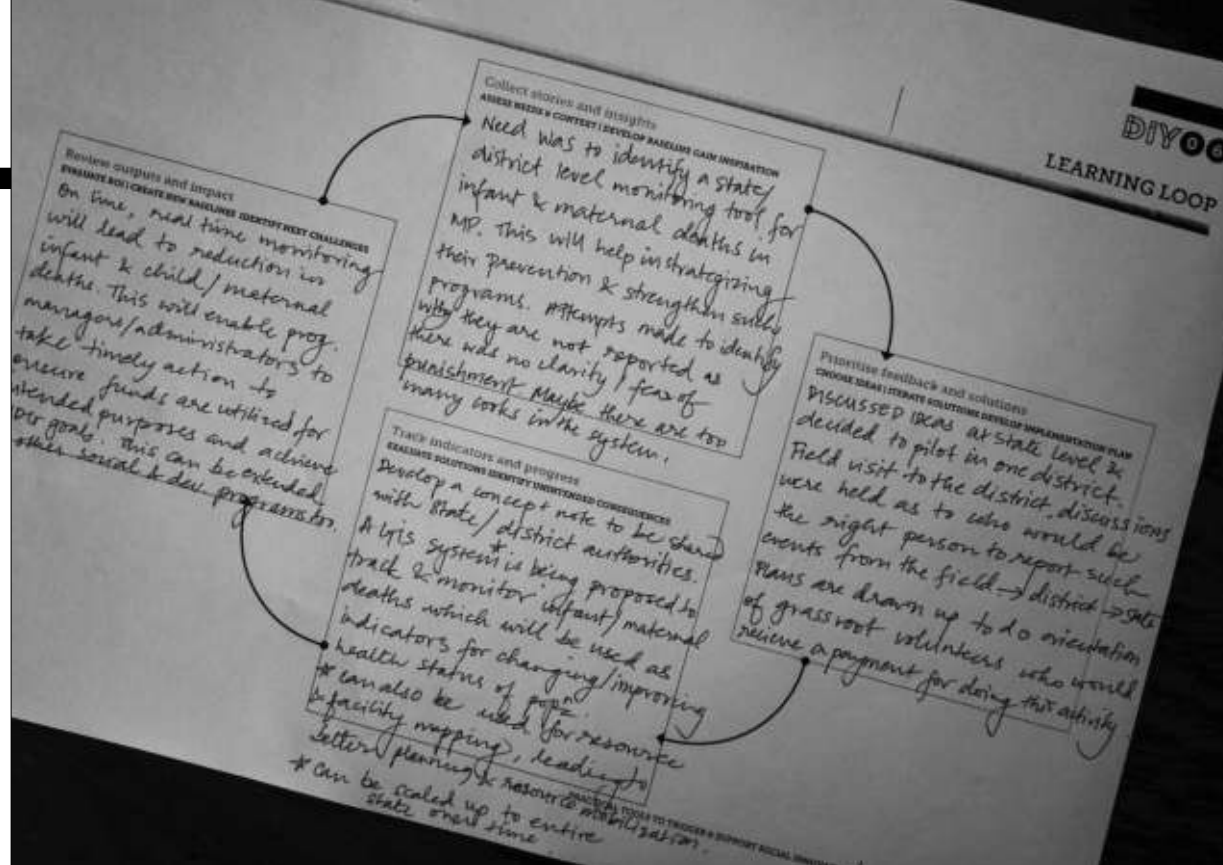 DIY 06
LEARNING LOOP
Collect stories and insights
ASSESS NEEDS & CONTEXT | DEVELOP BASELINE GAIN INSPIRATION
Need was to identify a state/
district level monitoring tool for
infant & maternal deaths in
MP. This will help in strategizing
their prevention & strengthen such
programs. Attempts made to identify
why they are not reported as
there was no clarity / fear of
punishment. Maybe there are too
many cooks in the system.
Prioritise feedback and solutions
CHOOSE IDEAS | ITERATE SOLUTIONS DEVELOP IMPLEMENTATION PLAN
DISCUSSED IDEAS at state level &
decided to pilot in one district.
Field visit to the district, discussions
were held as to who would be
the right person to report such
events from the field → district → state
Plans are drawn up to do orientation
of grassroot volunteers who would
recieve a payment for doing this activity
Track indicators and progress
EVALUATE SOLUTIONS IDENTIFY UNINTENDED CONSEQUENCES
Develop a concept note to be shared
with state/district authorities.
A GIS system* is being proposed to
track & monitor infant/maternal
deaths which will be used as
indicators for changing/improving
health status of popn.
* can also be used for resource
& facility mapping, leading to
better planning & resource mobilization.
* can be scaled up to entire
state over time.
Review outputs and impact
EVALUATE ROI | CREATE NEW BASELINES IDENTIFY NEXT CHALLENGES
On line, real time monitoring
will lead to reduction in
infant & child/maternal
deaths. This will enable prog.
managers/administrators to
take timely action to
ensure funds are utilized for
intended purposes and achieve
goals. This can be extended
other social & dev. programs too.
PRACTICAL TOOLS TO TRIGGER & SUPPORT SOCIAL